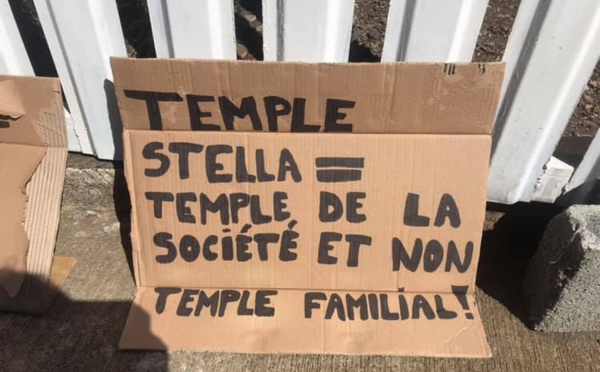 TEMPLE
STELLA =
TEMPLE DE LA
SOCIÉTÉ ET NON
TEMPLE FAMILIAL!